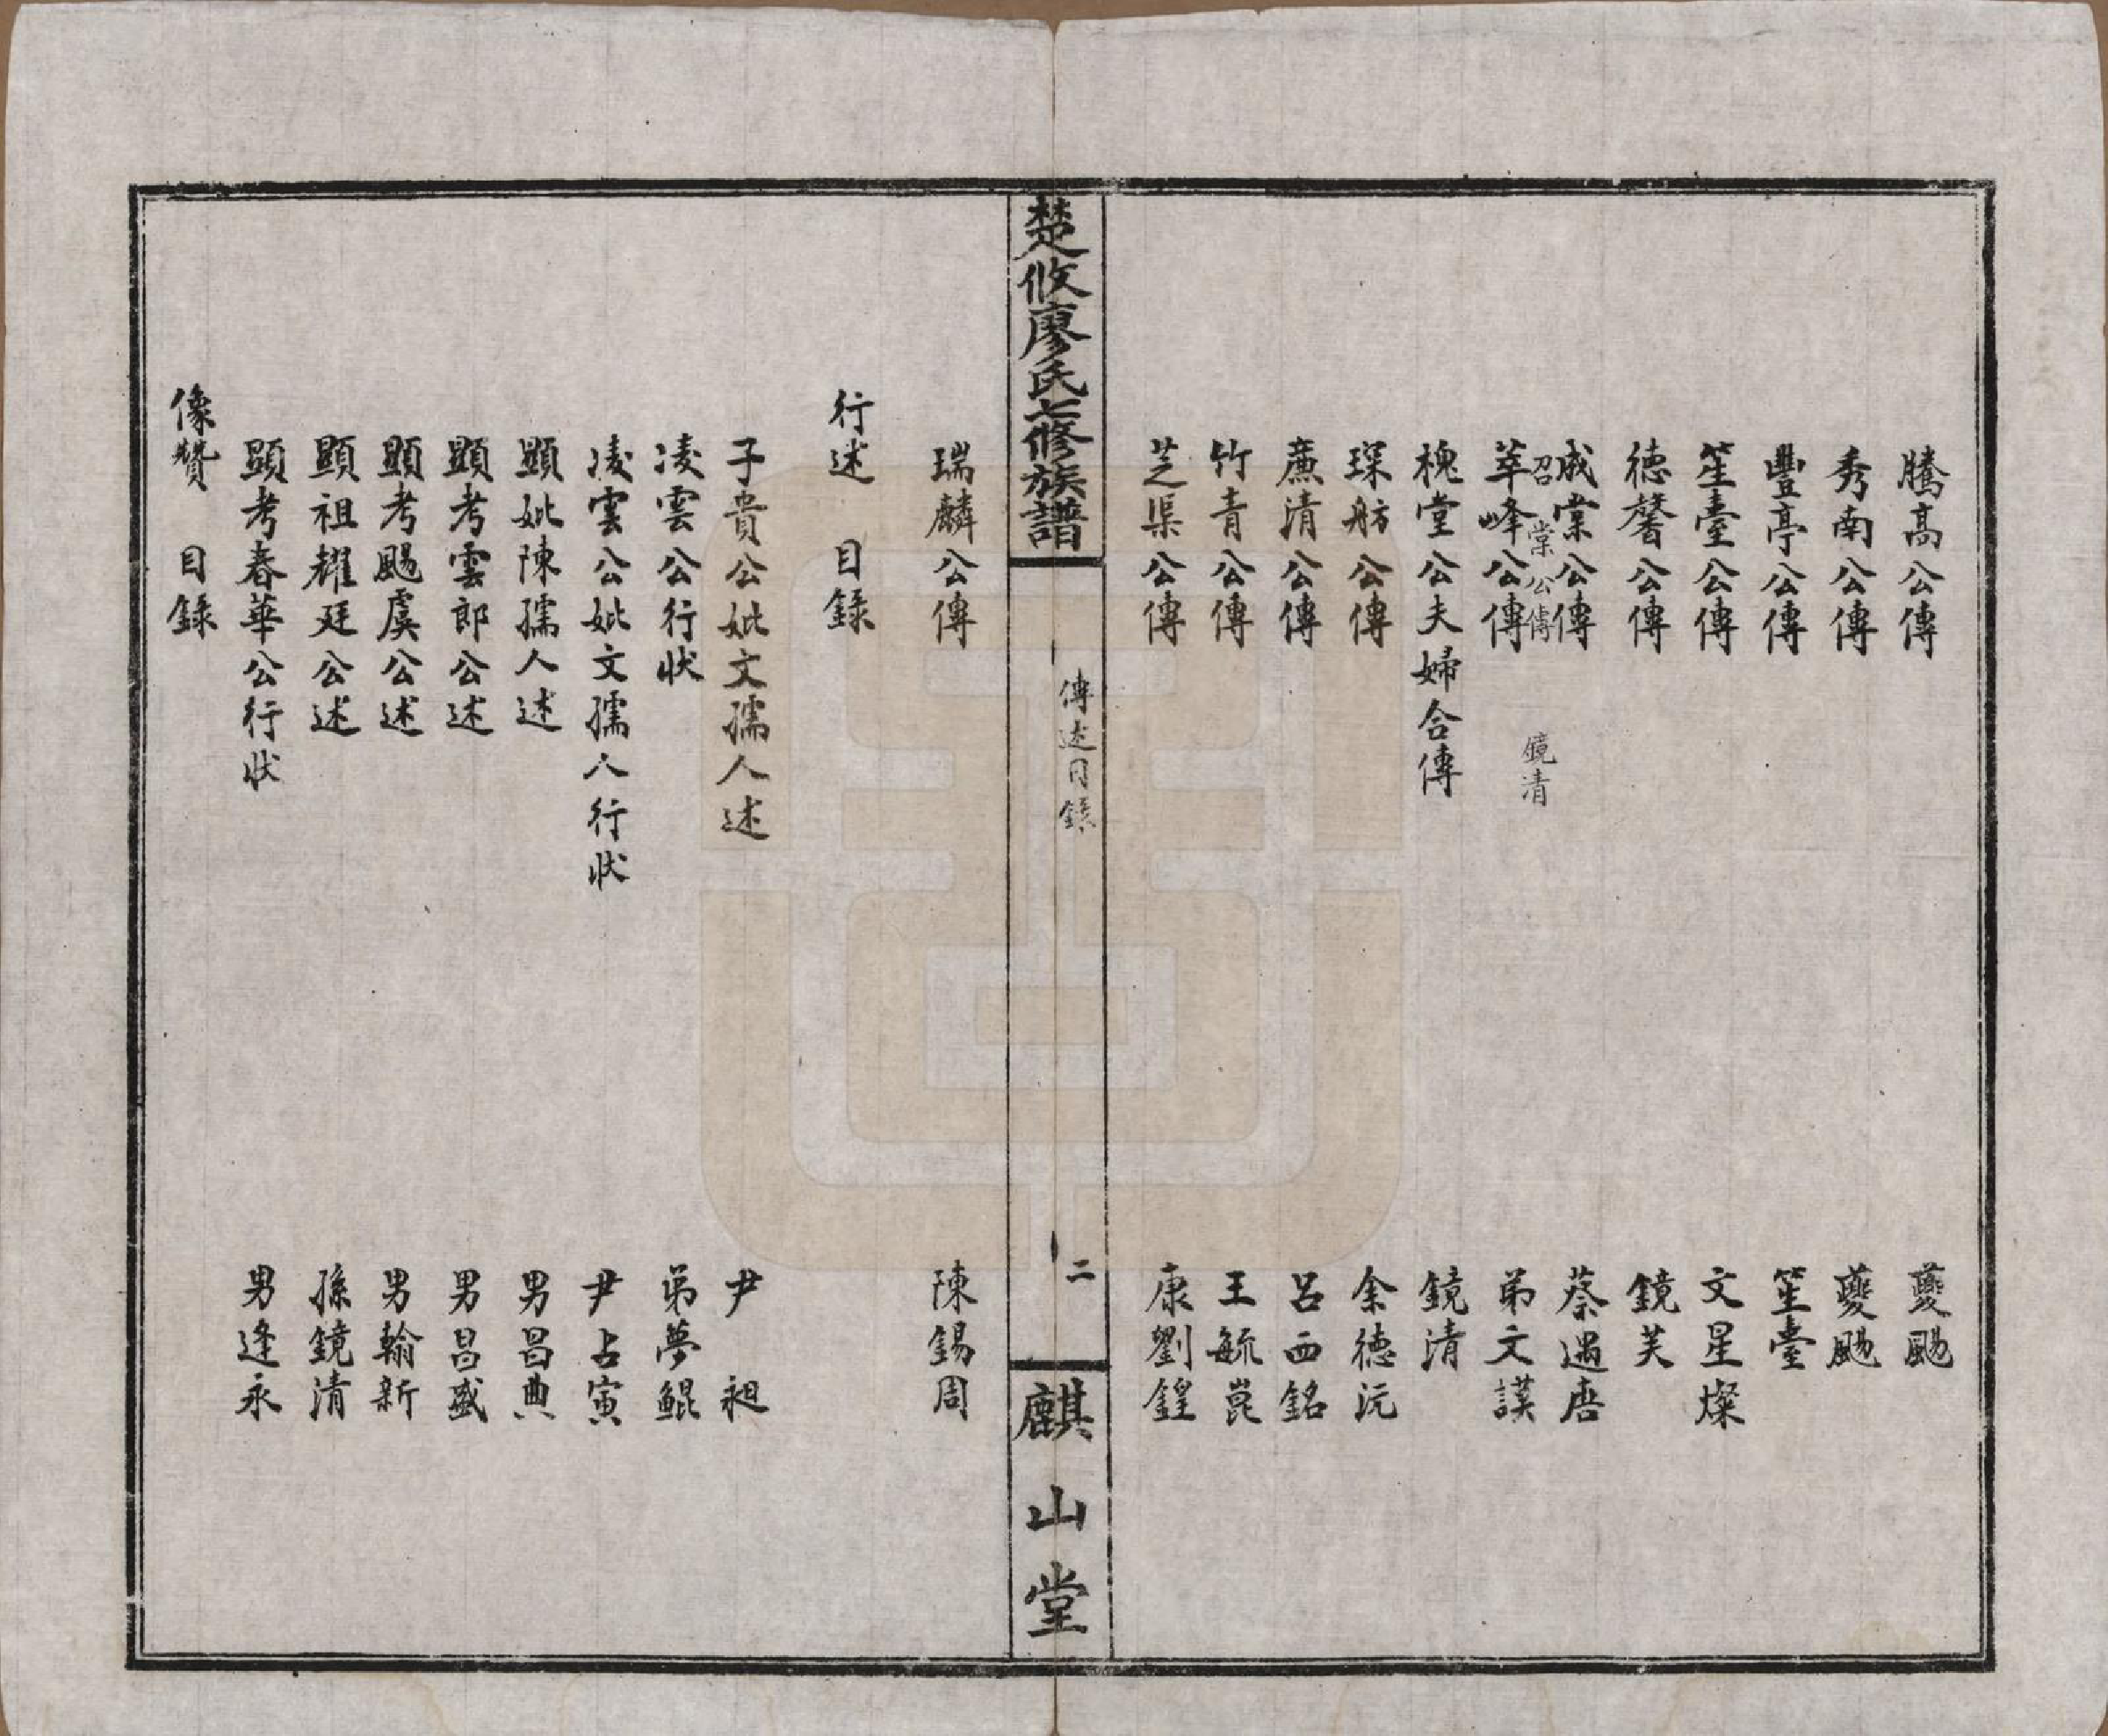 騰高公傳 夔颺
秀南公傳 夔颺
豐亭公傳 笙臺
笙臺公傳 文星燦
德馨公傳 鏡芙
成棠公傳 蔡遇唐
召棠公傳 鏡清
萃峰公傳 弟文謨
槐堂公夫婦合傳 鏡清
琛舫公傳 余德沅
蔗清公傳 呂西銘
竹青公傳 王毓崑
芝渠公傳 康劉鍠
楚攸廖氏七修族譜 傳述目錄 二 麒山堂
瑞麟公傳 陳錫周
行述 目錄
子貴公妣文孺人述 尹昶
凌雲公行狀 弟夢鯤
凌雲公妣文孺人行狀 尹占寅
顯妣陳孺人述 男昌典
顯考雲郎公述 男昌盛
顯考颺虞公述 男翰新
顯祖耀廷公述 孫鏡清
顯考春華公行狀 男逢永
像贊 目錄